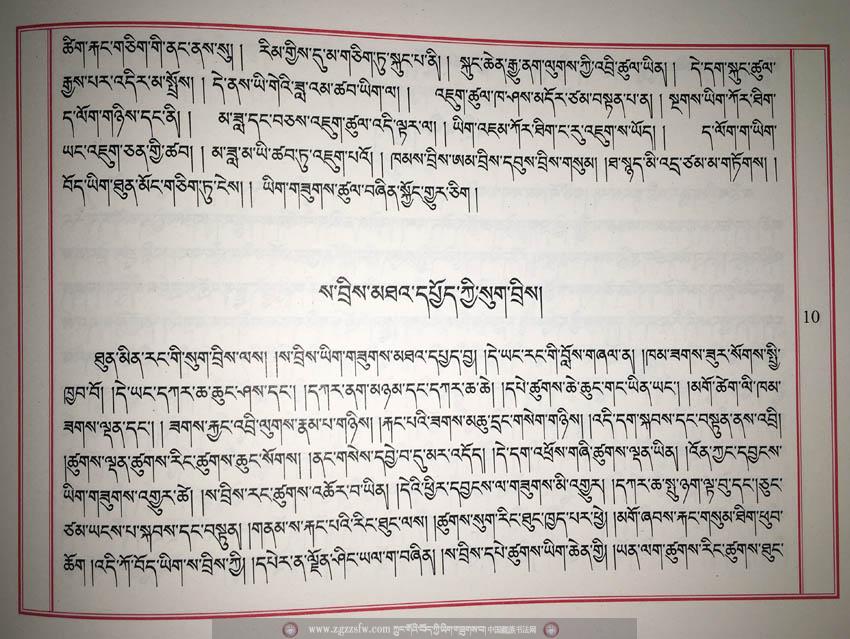 ཚིག་རྐང་གཅིག་གི་ནང་ནས་སུ། །རིམ་གྱིས་དུ་མ་གཅིག་ཏུ་སྐུང་པ་ནི། །སྐུང་ཆེན་རྒྱུ་ནག་ལུགས་ཀྱི་འབྲི་ཚུལ་ཡིན། །དེ་དག་སྐུང་ཚུལ་
རྒྱས་པར་འདིར་མ་སྤྲོས། །དེ་ནས་ཡི་གེའི་ཟླ་འམ་ཚབ་ཡིག་ལ། །འཇུག་ཚུལ་ཁ་ཤས་མདོར་ཙམ་བསྟན་པ་ན། །སྔགས་ཡིག་ཀོར་ཐིག་
ད་ལོག་གཉིས་དང་ནི། །མ་ཟླ་དང་བཅས་འཇུག་ཚུལ་འདི་ལྟར་ལ། །ཡིག་འཇམ་ཀོར་ཐིག་ང་རུ་འཇུག་ས་ཡོད། །ད་ལོག་ག་ཡིག་
ཡང་འཇུག་ཅན་གྱི་ཚབ། །མ་ཟླ་མ་ཡི་ཚབ་ཏུ་འཇུག་པའོ། །ཁམས་བྲིས་ཨམ་བྲིས་དབུས་བྲིས་གསུམ། །ཐ་སྙད་མི་འདྲ་ཙམ་མ་གཏོགས། །
བོད་ཡིག་ཐུན་མོང་གཅིག་ཏུ་ངེས། །ཡིག་གཟུགས་ཚུལ་བཞིན་སྐྱོང་གྱུར་ཅིག །
ས་བྲིས་མཐའ་དཔྱོད་ཀྱི་སུག་བྲིས།
10
ཐུན་མིན་རང་གི་སུག་བྲིས་ལས། །ས་བྲིས་ཡིག་གཟུགས་མཐའ་དཔྱད་བྱ། །དེ་ཡང་རང་གི་བློས་གཞལ་ན། །ཁམ་ཟགས་ཟུར་སོགས་སྤྱི་
ཁྱབ་བོ། །དེ་ཡང་དཀར་ཆ་ཆུང་ཤས་དང་། །དཀར་ནག་མཉམ་དང་དཀར་ཆ་ཆེ། །དཔེ་ཚུགས་ཆེ་ཆུང་གང་ཡིན་ཡང་། །མགོ་ཚེག་ལི་ཁམ་
ཟགས་ལྡན་དང་། །ཟགས་རྐྱང་འབྲི་ལུགས་རྣམ་པ་གཉིས། །རྐང་པའི་ཟགས་མཆུ་དྲང་གསེག་གཉིས། །འདི་དག་སྐབས་དང་བསྟུན་ནས་འབྲི།
།ཚུགས་ལྡན་ཚུགས་རིང་ཚུགས་ཆུང་སོགས། །ནང་གསེས་དབྱེ་བ་དུ་མར་འདོད། །དེ་དག་འཕྲོས་གཞི་ཚུགས་ལྡན་ཡིན། །འོན་ཀྱང་དབྱངས་
ཡིག་གཟུགས་འགྱུར་ཚེ། །ས་བྲིས་རང་ཚུགས་འཚོར་བ་ཡིན། །དེའི་ཕྱིར་དབྱངས་ལ་གཟུགས་མི་འགྱུར། །དཀར་ཆ་སྤུ་ཉག་ལྟ་བུ་དང་། །ཅུང་
ཙམ་ཡངས་པ་སྐབས་དང་བསྟུན། །གནམ་ས་རྐང་པའི་རིང་ཐུང་ལས། །ཚུགས་སུག་རིང་ཐུང་ཁྱད་པར་ཕྱེ། །མགོ་ཞབས་རྐང་གསུམ་ཐིག་ཕུབ་
ཆོག །འདི་ཀོ་བོད་ཡིག་ས་བྲིས་ཀྱི། །དཔེར་ན་ལྗོན་ཤིང་ཡལ་ག་བཞིན། །ས་བྲིས་དཔེ་ཚུགས་ཡིག་ཆེན་གྱི། །ཡན་ལག་ཚུགས་རིང་ཚུགས་ཐུང་
www.zgzzsfw.com ཀྲུང་གོའི་བོད་ཀྱི་ཡིག་གཟུགས་དྲ་བ། 中国藏族书法网